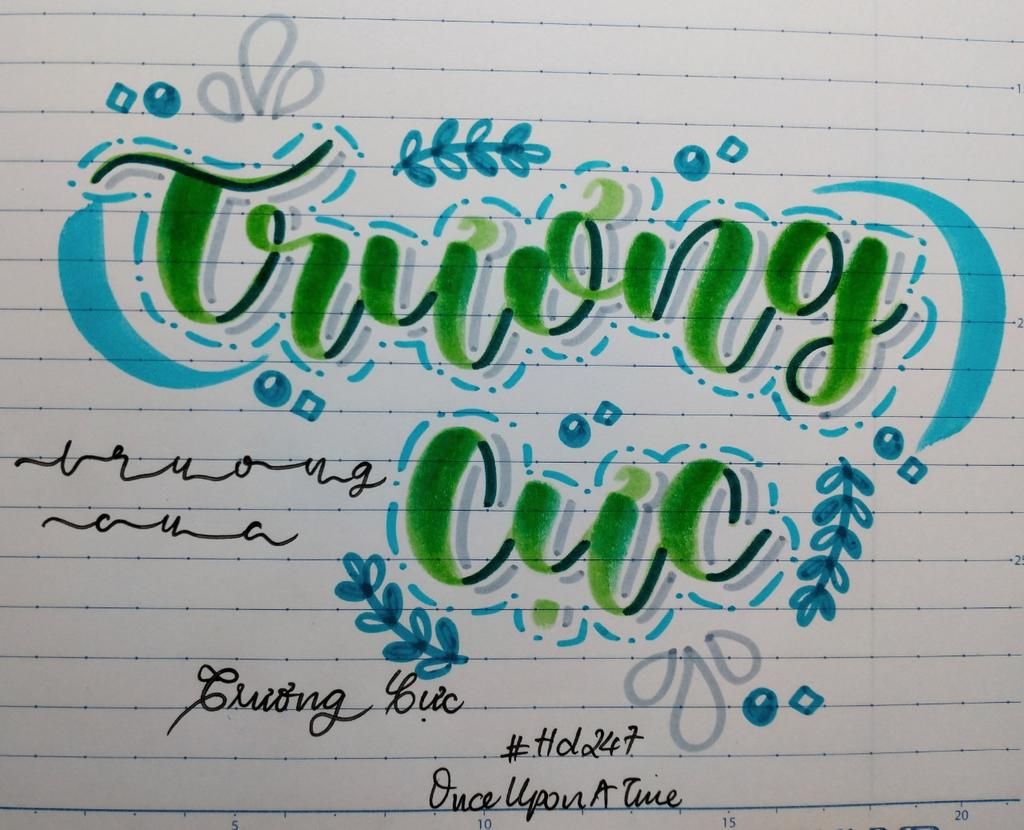 Trương
Cực
truong
cua
Trương Cực
#Hd247
Once Upon A Time
5 10 15 20
25